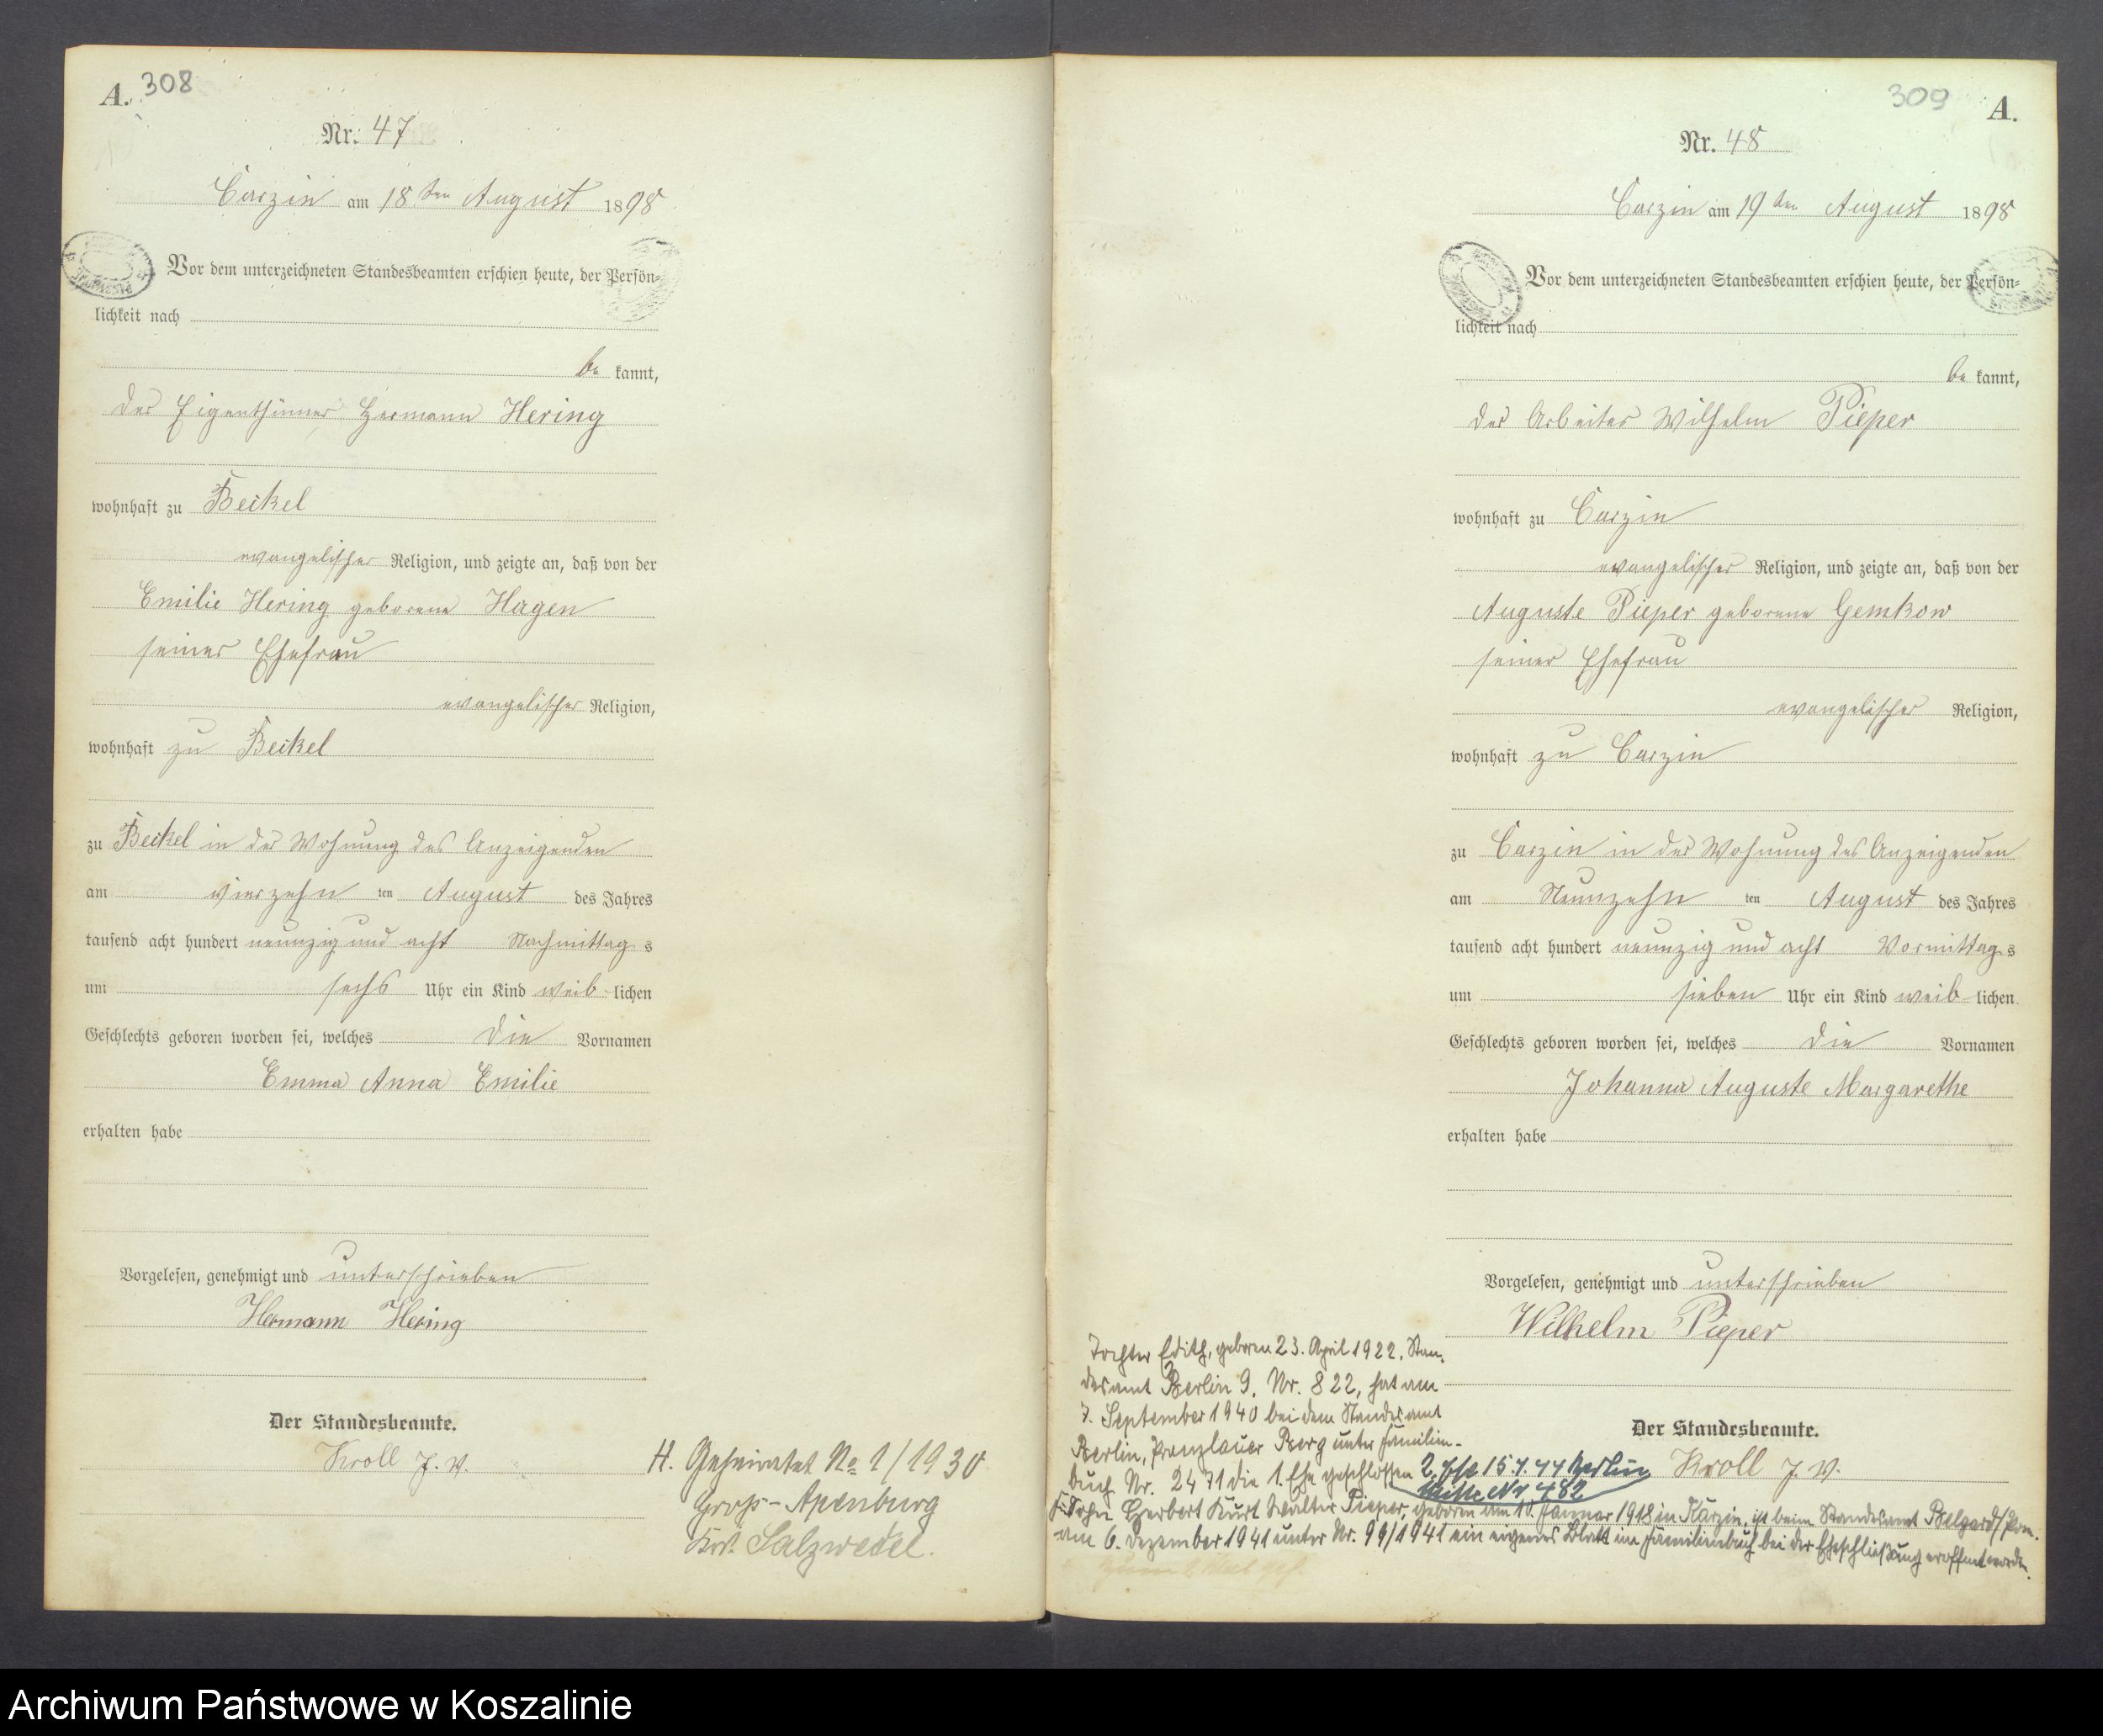 A. 308
Nr. 47
Carzin am 18ten August 1898
Vor dem unterzeichneten Standesbeamten erschien heute, der Persön-
lichkeit nach
be kannt,
der Eigenthümer Hermann Hering
wohnhaft zu Beikel
evangelischer Religion, und zeigte an, daß von der
Emilie Hering geborene Hagen
seiner Ehefrau
evangelischer Religion,
wohnhaft zu Beikel
zu Beikel in der Wohnung des Anzeigenden
am vierzehn ten August des Jahres
tausend acht hundert neunzig und acht Nachmittag s
um sechs Uhr ein Kind weib lichen
Geschlechts geboren worden sei, welches die Vornamen
Emma Anna Emilie
erhalten habe
Vorgelesen, genehmigt und unterschrieben
Hermann Hering
Der Standesbeamte.
Kroll J. V.
H. Geheiratet No 1/1930
Gross-Apenburg
Krs. Salzwedel.
309 A.
Nr. 48
Carzin am 19ten August 1898
Vor dem unterzeichneten Standesbeamten erschien heute, der Persön-
lichkeit nach
be kannt,
der Arbeiter Wilhelm Pieper
wohnhaft zu Carzin
evangelischer Religion, und zeigte an, daß von der
Auguste Pieper geborene Gemkow
seiner Ehefrau
evangelischer Religion,
wohnhaft zu Carzin
zu Carzin in der Wohnung des Anzeigenden
am Neunzehn ten August des Jahres
tausend acht hundert neunzig und acht Vormittag s
um sieben Uhr ein Kind weib lichen
Geschlechts geboren worden sei, welches die Vornamen
Johanna Auguste Margarethe
erhalten habe
Vorgelesen, genehmigt und unterschrieben
Wilhelm Pieper
Der Standesbeamte.
Kroll J. V.
Tochter Edith, geboren 23. April 1922, Stan-
desamt Berlin 9, Nr. 822, hat am
7. September 1940 bei dem Standesamt
Berlin, Prenzlauer Berg unter Familien-
buch Nr. 2471 die 1. Ehe geschlossen
2. Ehe 15.7.44 Berlin
Mitte Nr 482
Sohn Herbert Kurt Walter Pieper, geboren am 10. Januar 1918 in Karzin, ist beim Standesamt Belgard/Pom.
am 6. Dezember 1941 unter Nr. 99/1941 ein eigenes Blatt im Familienbuch bei der Eheschließung eröffnet worden.
Archiwum Państwowe w Koszalinie